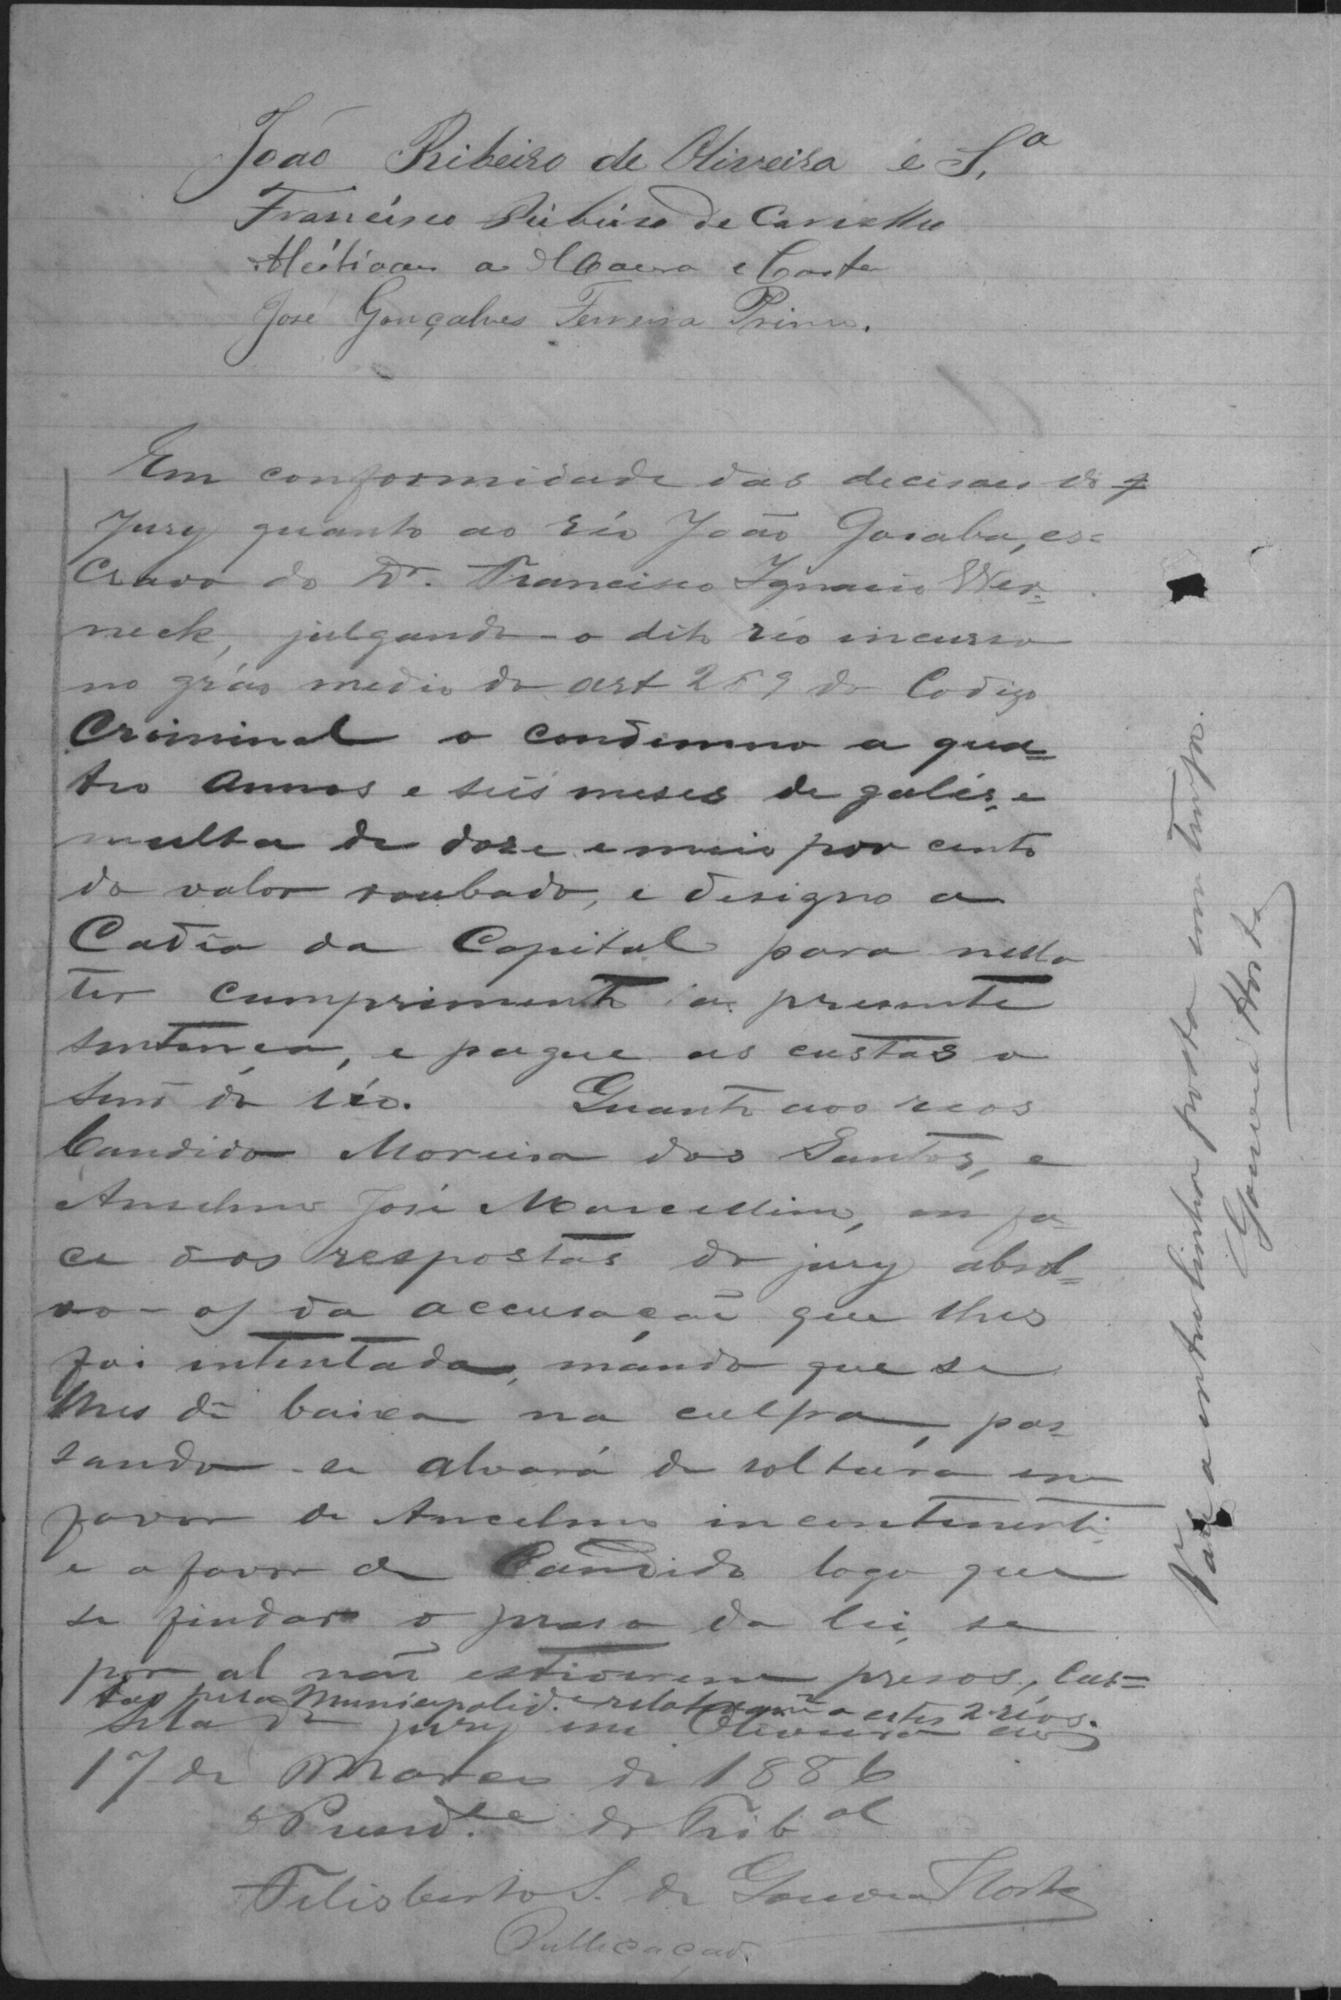 João Ribeiro de Oliveira e S.ª
Francisco Ribeiro de Carvalho
a Moura e Costa
José Gonçalves Ferreira Primo.
Em conformidade das decisões do
Jury quanto ao réo João Garaba, es=
cravo do Dr. Francisco Ignacio Wer=
neck, julgando-o dito réo incurso
no gráo medio do art 269 do Codigo
Criminal o condemno a qua=
tro annos e seis meses de galés, e
multa de doze e meio por cento
do valor roubado, e designo a
Cadêa da Capital para nella
ter cumprimento a presente
sentença, e pague as custas o
senr do réo. Quanto aos reos
Candido Moreira dos Santos, e
Anselmo José Marcellino, em fa-
ce das respostas do jury absol=
vo-os da accusação que lhes
foi intentada, mando que se
lhes dê baixa na culpa, pas-
sando-se alvará de soltura em
favor de Ancelmo incontinenti
e a favor de Candido logo que
se findar o praso da lei, se
por al não estiverem presos, Cus=
tas pela Municipalid.e relativamte a estes 2 réos.
Sala do jury em Oliveira aos
17 de Março de 1886
O Presid.te do Trib.al
Felisberto S. de Gouvea Horta
Publicação
Vale a entrelinha posta em tempo.
Gouvea Horta